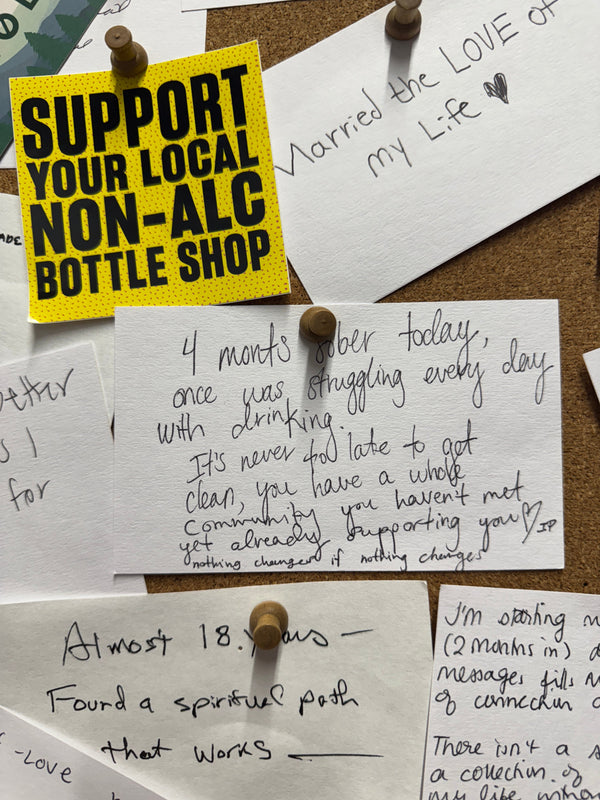 SUPPORT
YOUR LOCAL
NON-ALC
BOTTLE SHOP
Married the LOVE of
my Life
ADE
4 monts sober today,
once was struggling every day
with drinking.
It's never too late to get
clean, you have a whole
community you haven't met
yet already supporting you
nothing changes if nothing changes
etter
s I
for
Almost 18. years —
Found a spiritual path
that works
-Love
I'm starting
(2 months in)
messages fills
of connection
There isn't a
a collection of
my life